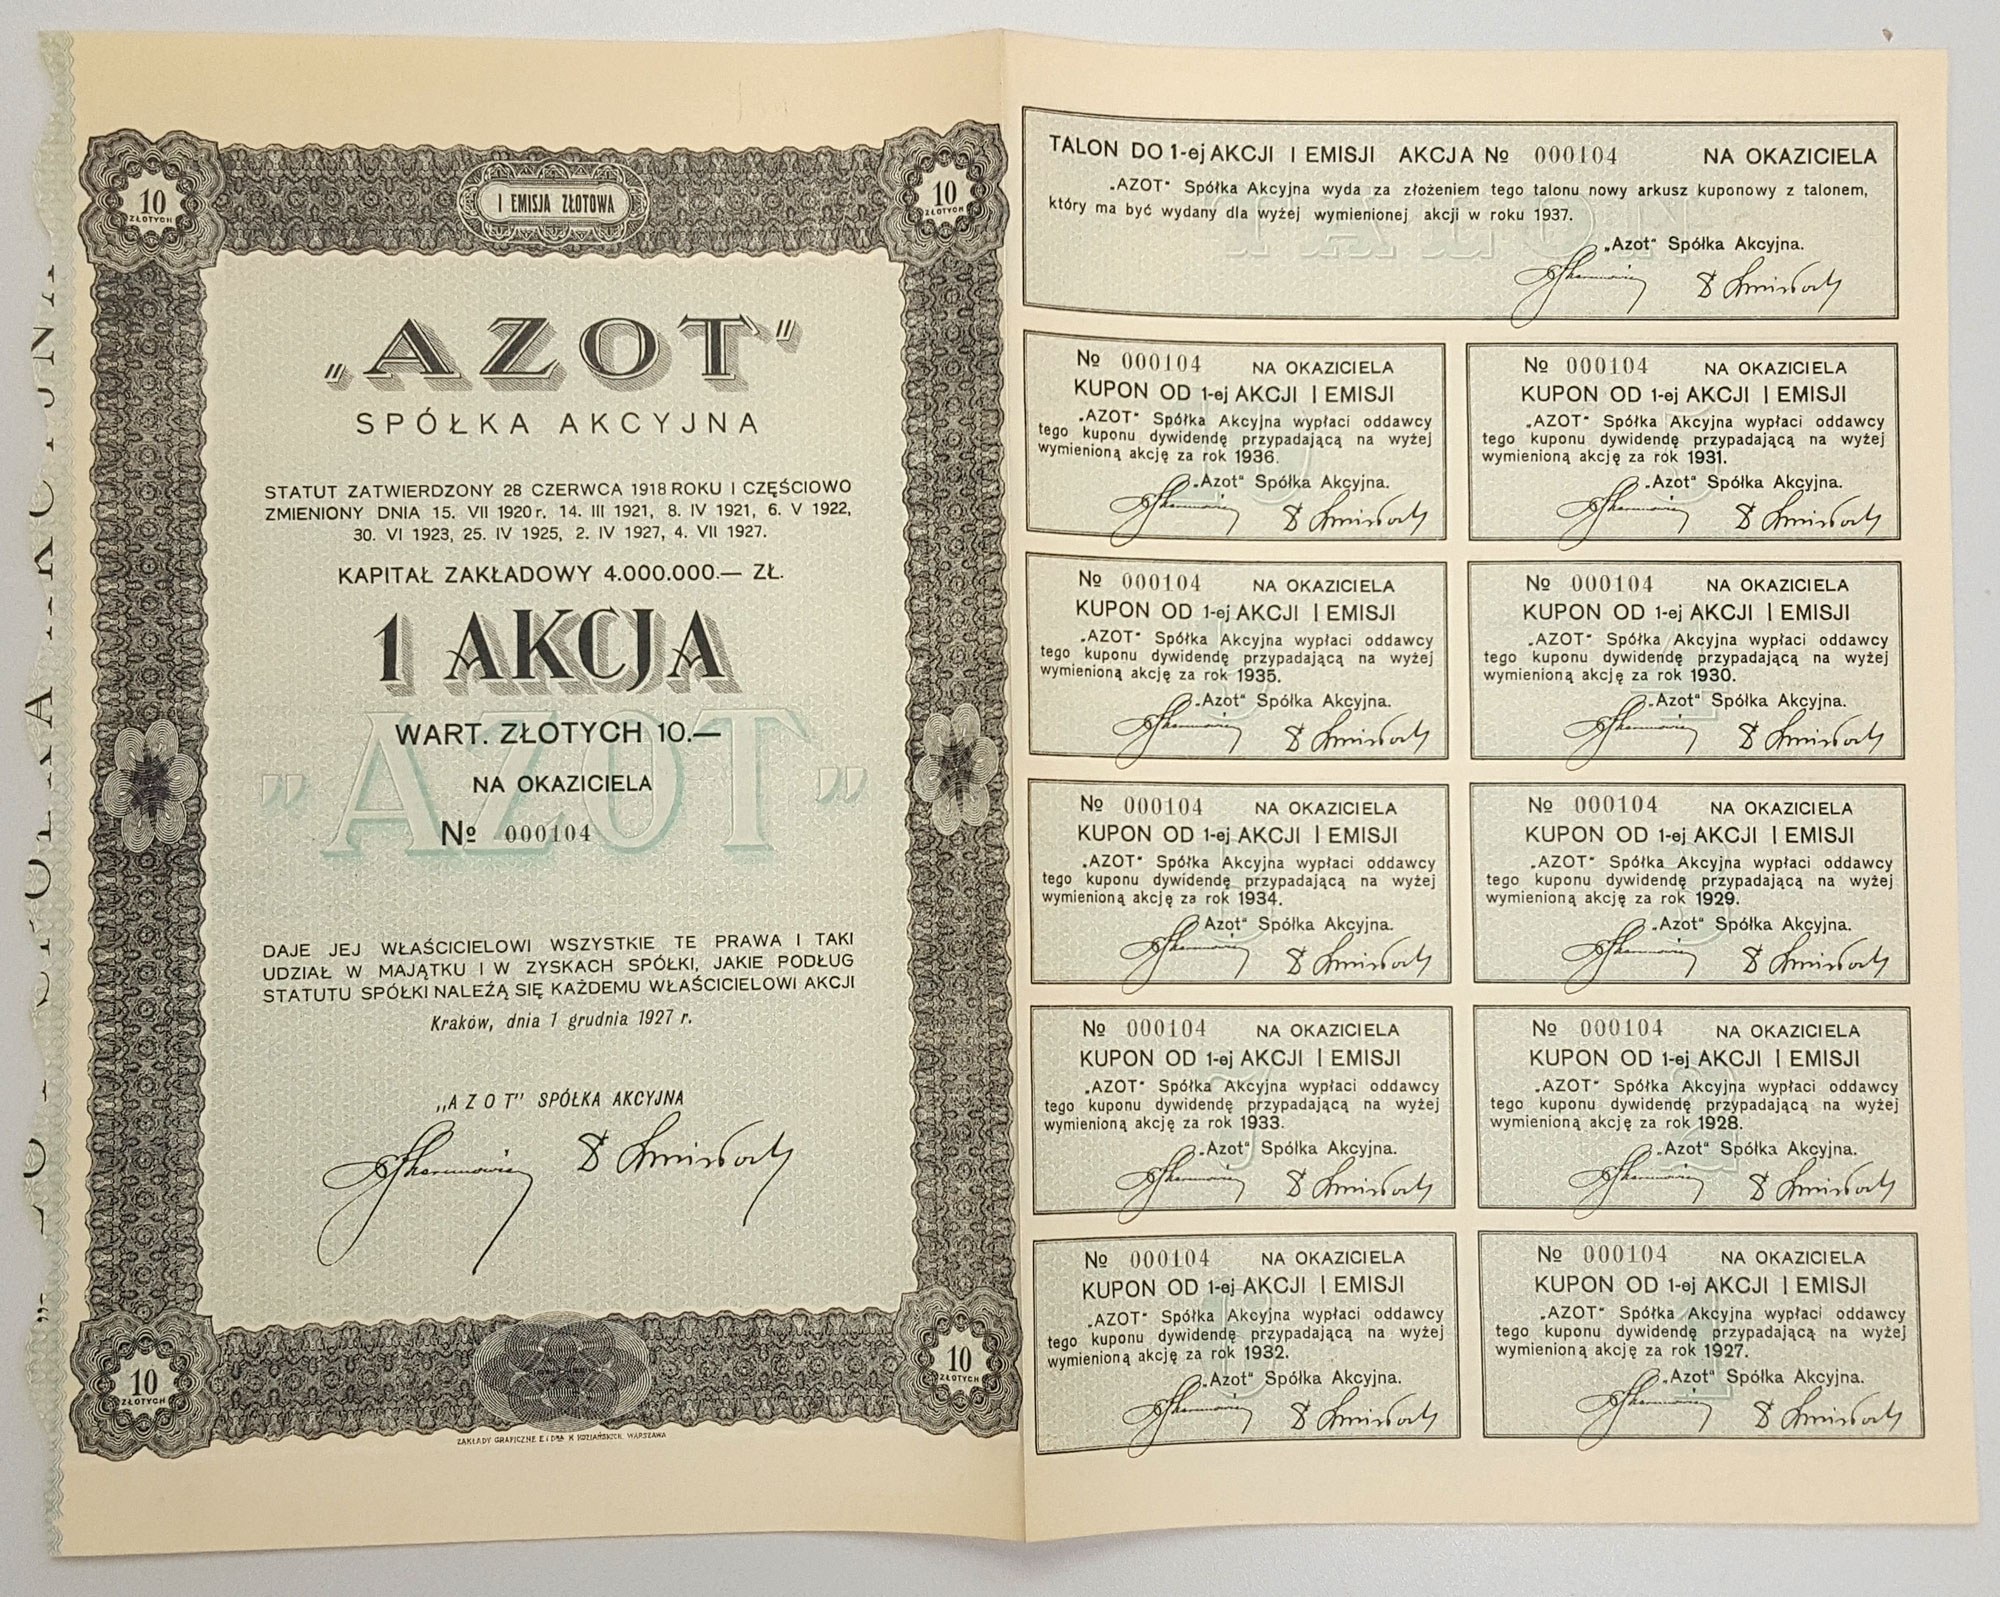 10
ZŁOTYCH
I EMISJA ZŁOTOWA
10
ZŁOTYCH
„AZOT"
SPÓŁKA AKCYJNA
STATUT ZATWIERDZONY 28 CZERWCA 1918 ROKU I CZĘŚCIOWO
ZMIENIONY DNIA 15. VII 1920 r. 14. III 1921, 8. IV 1921, 6. V 1922,
30. VI 1923, 25. IV 1925, 2. IV 1927, 4. VII 1927.
KAPITAŁ ZAKŁADOWY 4.000.000.— ZŁ.
1 AKCJA
WART. ZŁOTYCH 10.—
„AZOT"
NA OKAZICIELA
№ 000104
DAJE JEJ WŁAŚCICIELOWI WSZYSTKIE TE PRAWA I TAKI
UDZIAŁ W MAJĄTKU I W ZYSKACH SPÓŁKI, JAKIE PODŁUG
STATUTU SPÓŁKI NALEŻĄ SIĘ KAŻDEMU WŁAŚCICIELOWI AKCJI
Kraków, dnia 1 grudnia 1927 r.
„AZOT" SPÓŁKA AKCYJNA
10
ZŁOTYCH
10
ZŁOTYCH
TALON DO 1-ej AKCJI I EMISJI AKCJA № 000104 NA OKAZICIELA
„AZOT" Spółka Akcyjna wyda za złożeniem tego talonu nowy arkusz kuponowy z talonem,
który ma być wydany dla wyżej wymienionej akcji w roku 1937.
TALON
„Azot" Spółka Akcyjna.
№ 000104 NA OKAZICIELA
KUPON OD 1-ej AKCJI I EMISJI
„AZOT" Spółka Akcyjna wypłaci oddawcy
tego kuponu dywidendę przypadającą na wyżej
wymienioną akcję za rok 1936.
„Azot" Spółka Akcyjna.
№ 000104 NA OKAZICIELA
KUPON OD 1-ej AKCJI I EMISJI
„AZOT" Spółka Akcyjna wypłaci oddawcy
tego kuponu dywidendę przypadającą na wyżej
wymienioną akcję za rok 1931.
„Azot" Spółka Akcyjna.
№ 000104 NA OKAZICIELA
KUPON OD 1-ej AKCJI I EMISJI
„AZOT" Spółka Akcyjna wypłaci oddawcy
tego kuponu dywidendę przypadającą na wyżej
wymienioną akcję za rok 1935.
„Azot" Spółka Akcyjna.
№ 000104 NA OKAZICIELA
KUPON OD 1-ej AKCJI I EMISJI
„AZOT" Spółka Akcyjna wypłaci oddawcy
tego kuponu dywidendę przypadającą na wyżej
wymienioną akcję za rok 1930.
„Azot" Spółka Akcyjna.
№ 000104 NA OKAZICIELA
KUPON OD 1-ej AKCJI I EMISJI
„AZOT" Spółka Akcyjna wypłaci oddawcy
tego kuponu dywidendę przypadającą na wyżej
wymienioną akcję za rok 1934.
„Azot" Spółka Akcyjna.
№ 000104 NA OKAZICIELA
KUPON OD 1-ej AKCJI I EMISJI
„AZOT" Spółka Akcyjna wypłaci oddawcy
tego kuponu dywidendę przypadającą na wyżej
wymienioną akcję za rok 1929.
„Azot" Spółka Akcyjna.
№ 000104 NA OKAZICIELA
KUPON OD 1-ej AKCJI I EMISJI
„AZOT" Spółka Akcyjna wypłaci oddawcy
tego kuponu dywidendę przypadającą na wyżej
wymienioną akcję za rok 1933.
„Azot" Spółka Akcyjna.
№ 000104 NA OKAZICIELA
KUPON OD 1-ej AKCJI I EMISJI
„AZOT" Spółka Akcyjna wypłaci oddawcy
tego kuponu dywidendę przypadającą na wyżej
wymienioną akcję za rok 1928.
„Azot" Spółka Akcyjna.
№ 000104 NA OKAZICIELA
KUPON OD 1-ej AKCJI I EMISJI
„AZOT" Spółka Akcyjna wypłaci oddawcy
tego kuponu dywidendę przypadającą na wyżej
wymienioną akcję za rok 1932.
„Azot" Spółka Akcyjna.
№ 000104 NA OKAZICIELA
KUPON OD 1-ej AKCJI I EMISJI
„AZOT" Spółka Akcyjna wypłaci oddawcy
tego kuponu dywidendę przypadającą na wyżej
wymienioną akcję za rok 1927.
„Azot" Spółka Akcyjna.
ZAKŁADY GRAFICZNE E. i DRA K. KOZIAŃSKICH, WARSZAWA